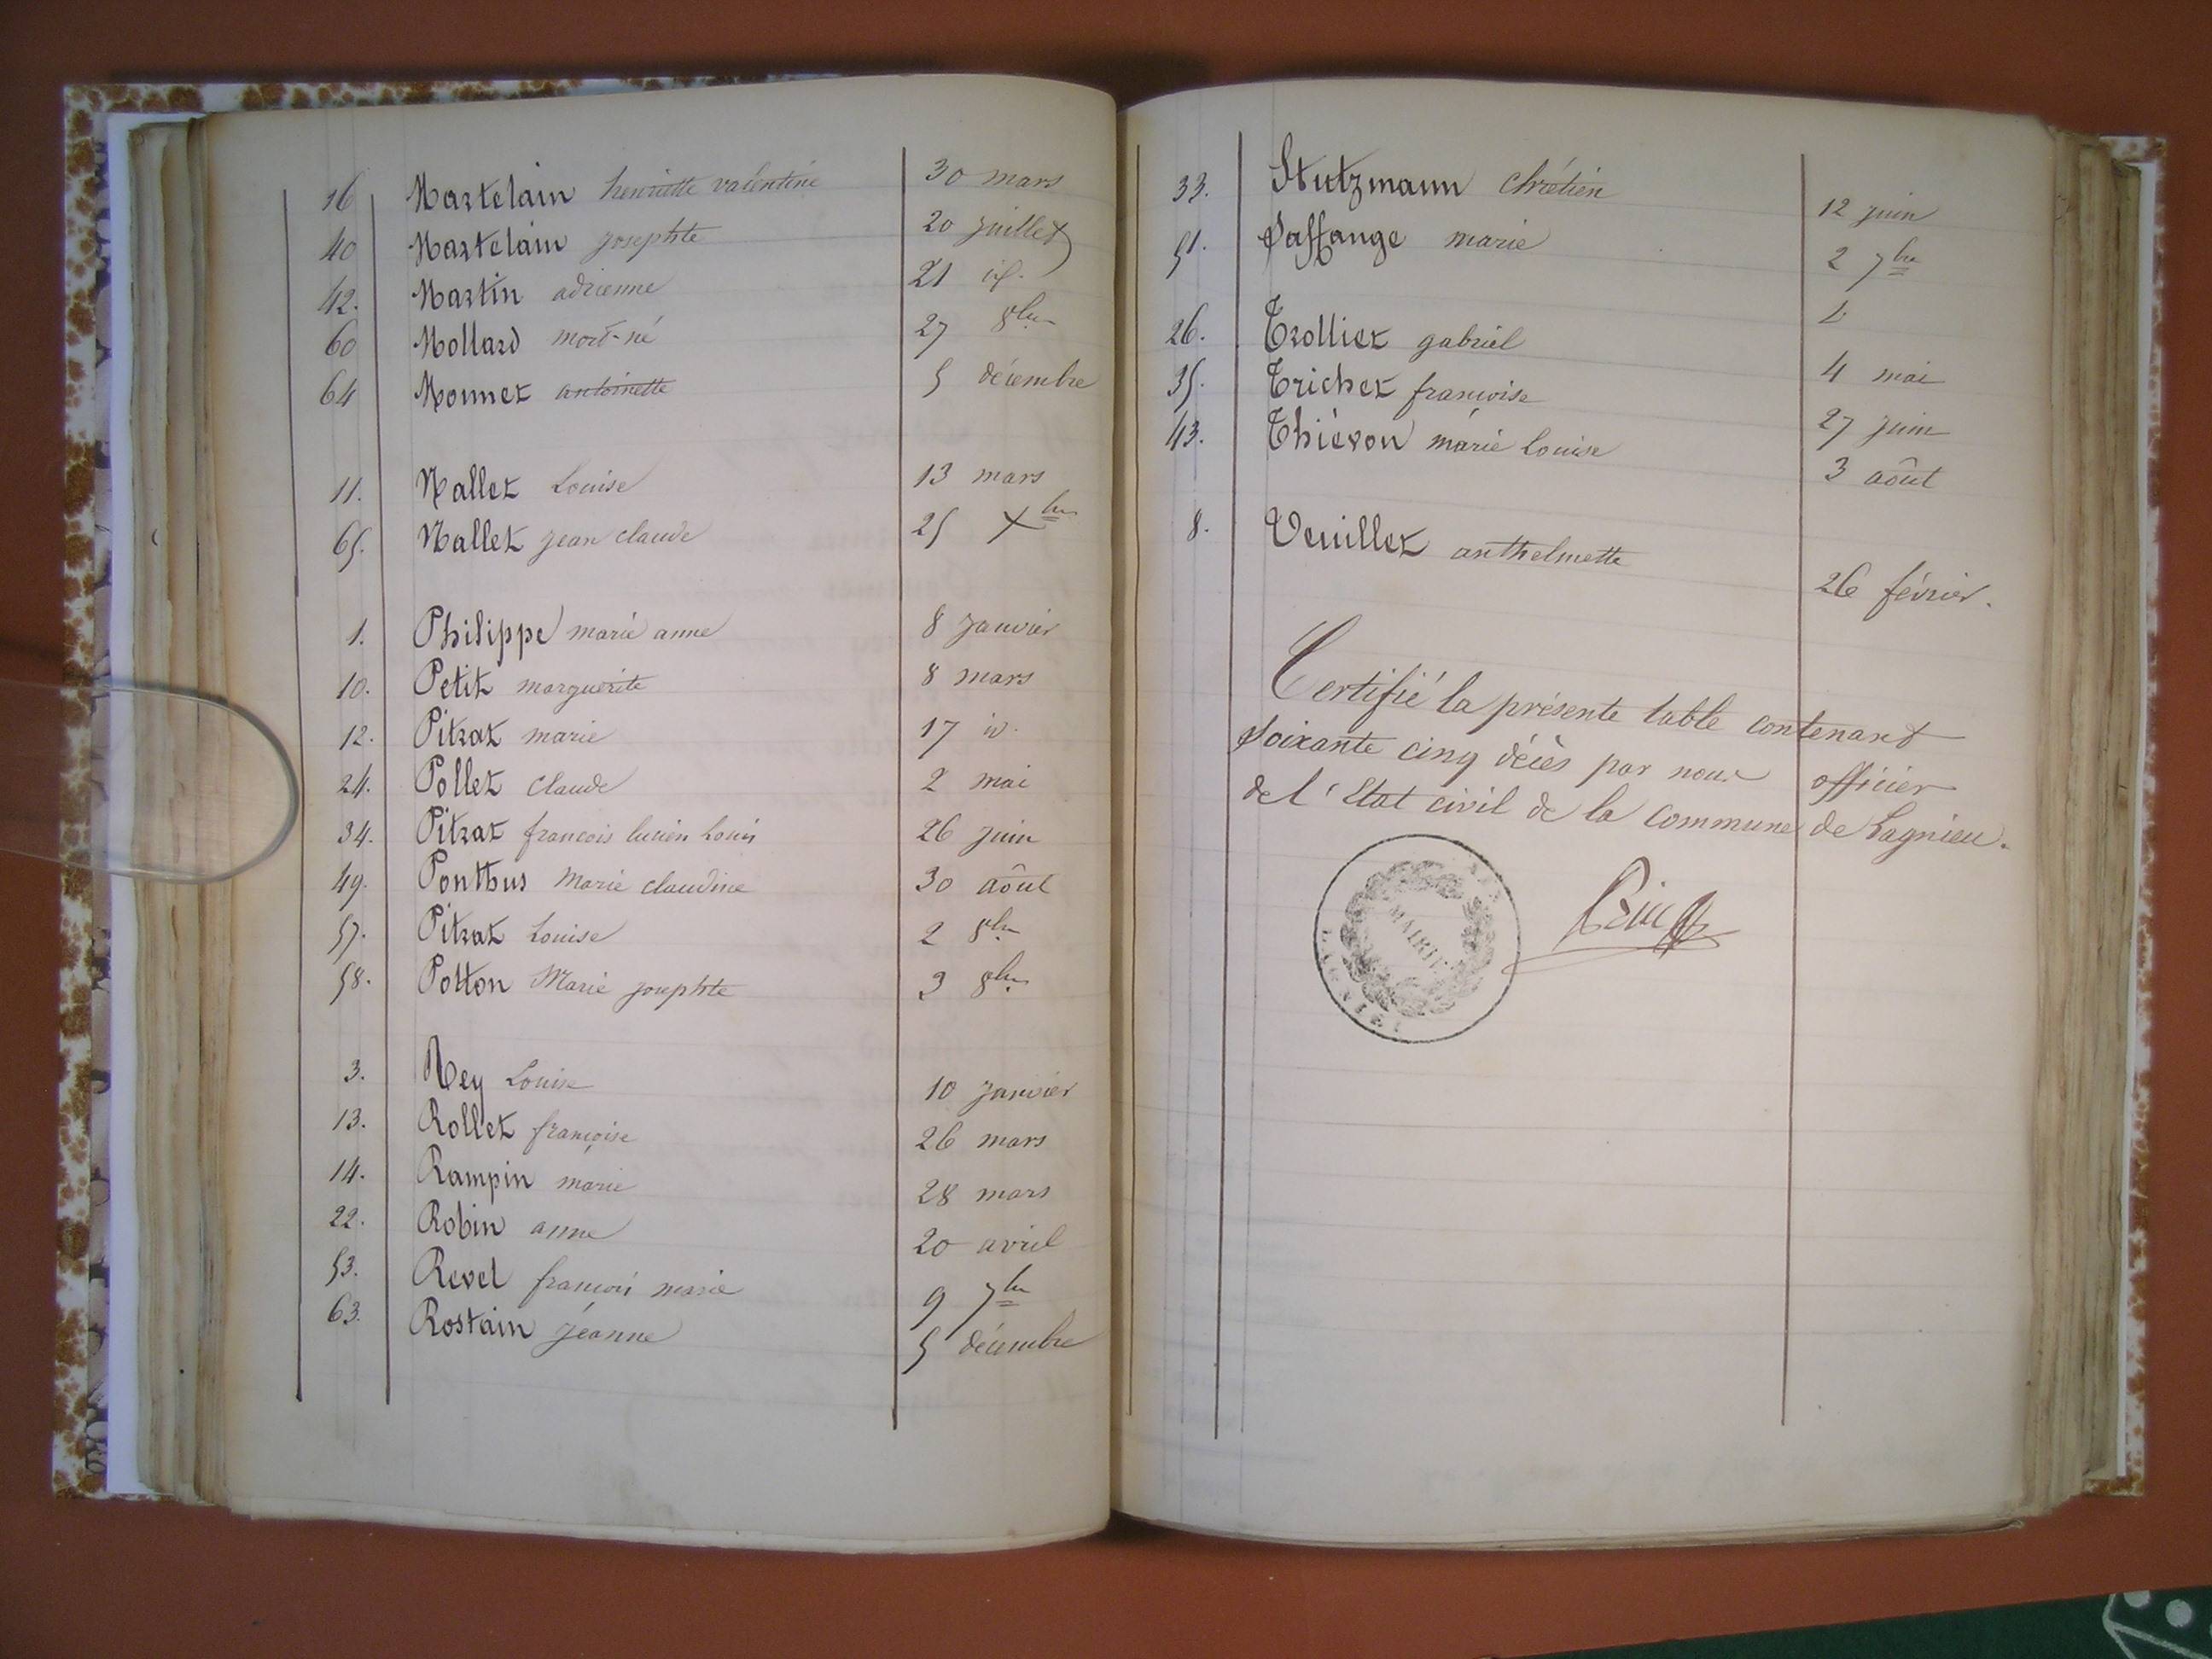 16 Martelain henriette valentine 30 mars
40 Martelain josephte 20 juillet
42. Martin adrienne 21 id.
60 Mollard mort-né 27 8bre
64 Monnet antoinette 5 décembre
11. Nallet Louise 13 mars
65. Nallet jean claude 25 Xbre
1. Philippe marie anne 8 janvier
10. Petit marguerite 8 mars
12. Pitrat marie 17 id.
24. Pollet Claude 2 mai
34. Pitrat francois lucien Louis 26 juin
49. Ponthus Marie claudine 30 août
57. Pitrat Louise 2 8bre
58. Potton Marie josephte 3 8bre
3. Rey Louise 10 janvier
13. Rollet françoise 26 mars
14. Rampin marie 28 mars
22. Robin anne 20 avril
53. Revel françois marie 9 7bre
63. Rostain jéanne 5 décembre
33. Stutzmann chrétien 12 juin
51. Saffange marie 2 7bre
26. Trollier gabriel 4 mai
35. Trichet françoise 27 juin
43. Thiévon marie Louise 3 août
8. Veuillet anthelmette 26 février.
Certifié la présente table contenant
soixante cinq décès par nous officier
de l'Etat civil de la commune de Lagnieu.
MAIRIE
LAGNIEU